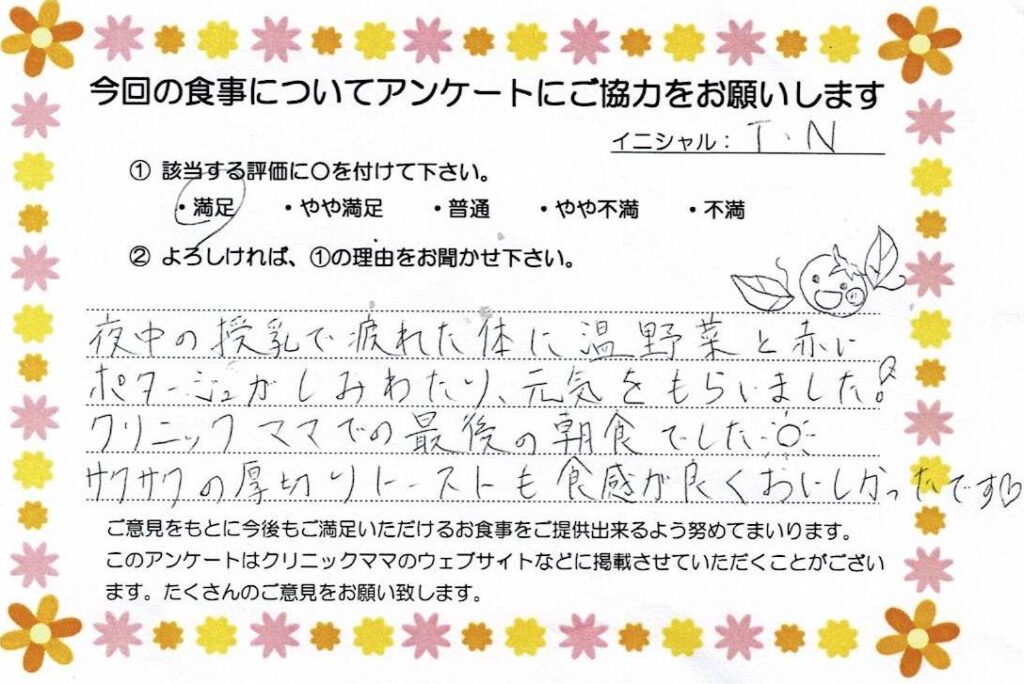 今回の食事についてアンケートにご協力をお願いします
イニシャル： T・N
① 該当する評価に○を付けて下さい。
・満足 ・やや満足 ・普通 ・やや不満 ・不満
② よろしければ、①の理由をお聞かせ下さい。
夜中の授乳で疲れた体に温野菜と赤い
ポタージュがしみわたり、元気をもらいました!
クリニックママでの最後の朝食でした
サクサクの厚切りトーストも食感が良くおいしかったです♡
ご意見をもとに今後もご満足いただけるお食事をご提供出来るよう努めてまいります。
このアンケートはクリニックママのウェブサイトなどに掲載させていただくことがござい
ます。たくさんのご意見をお願い致します。